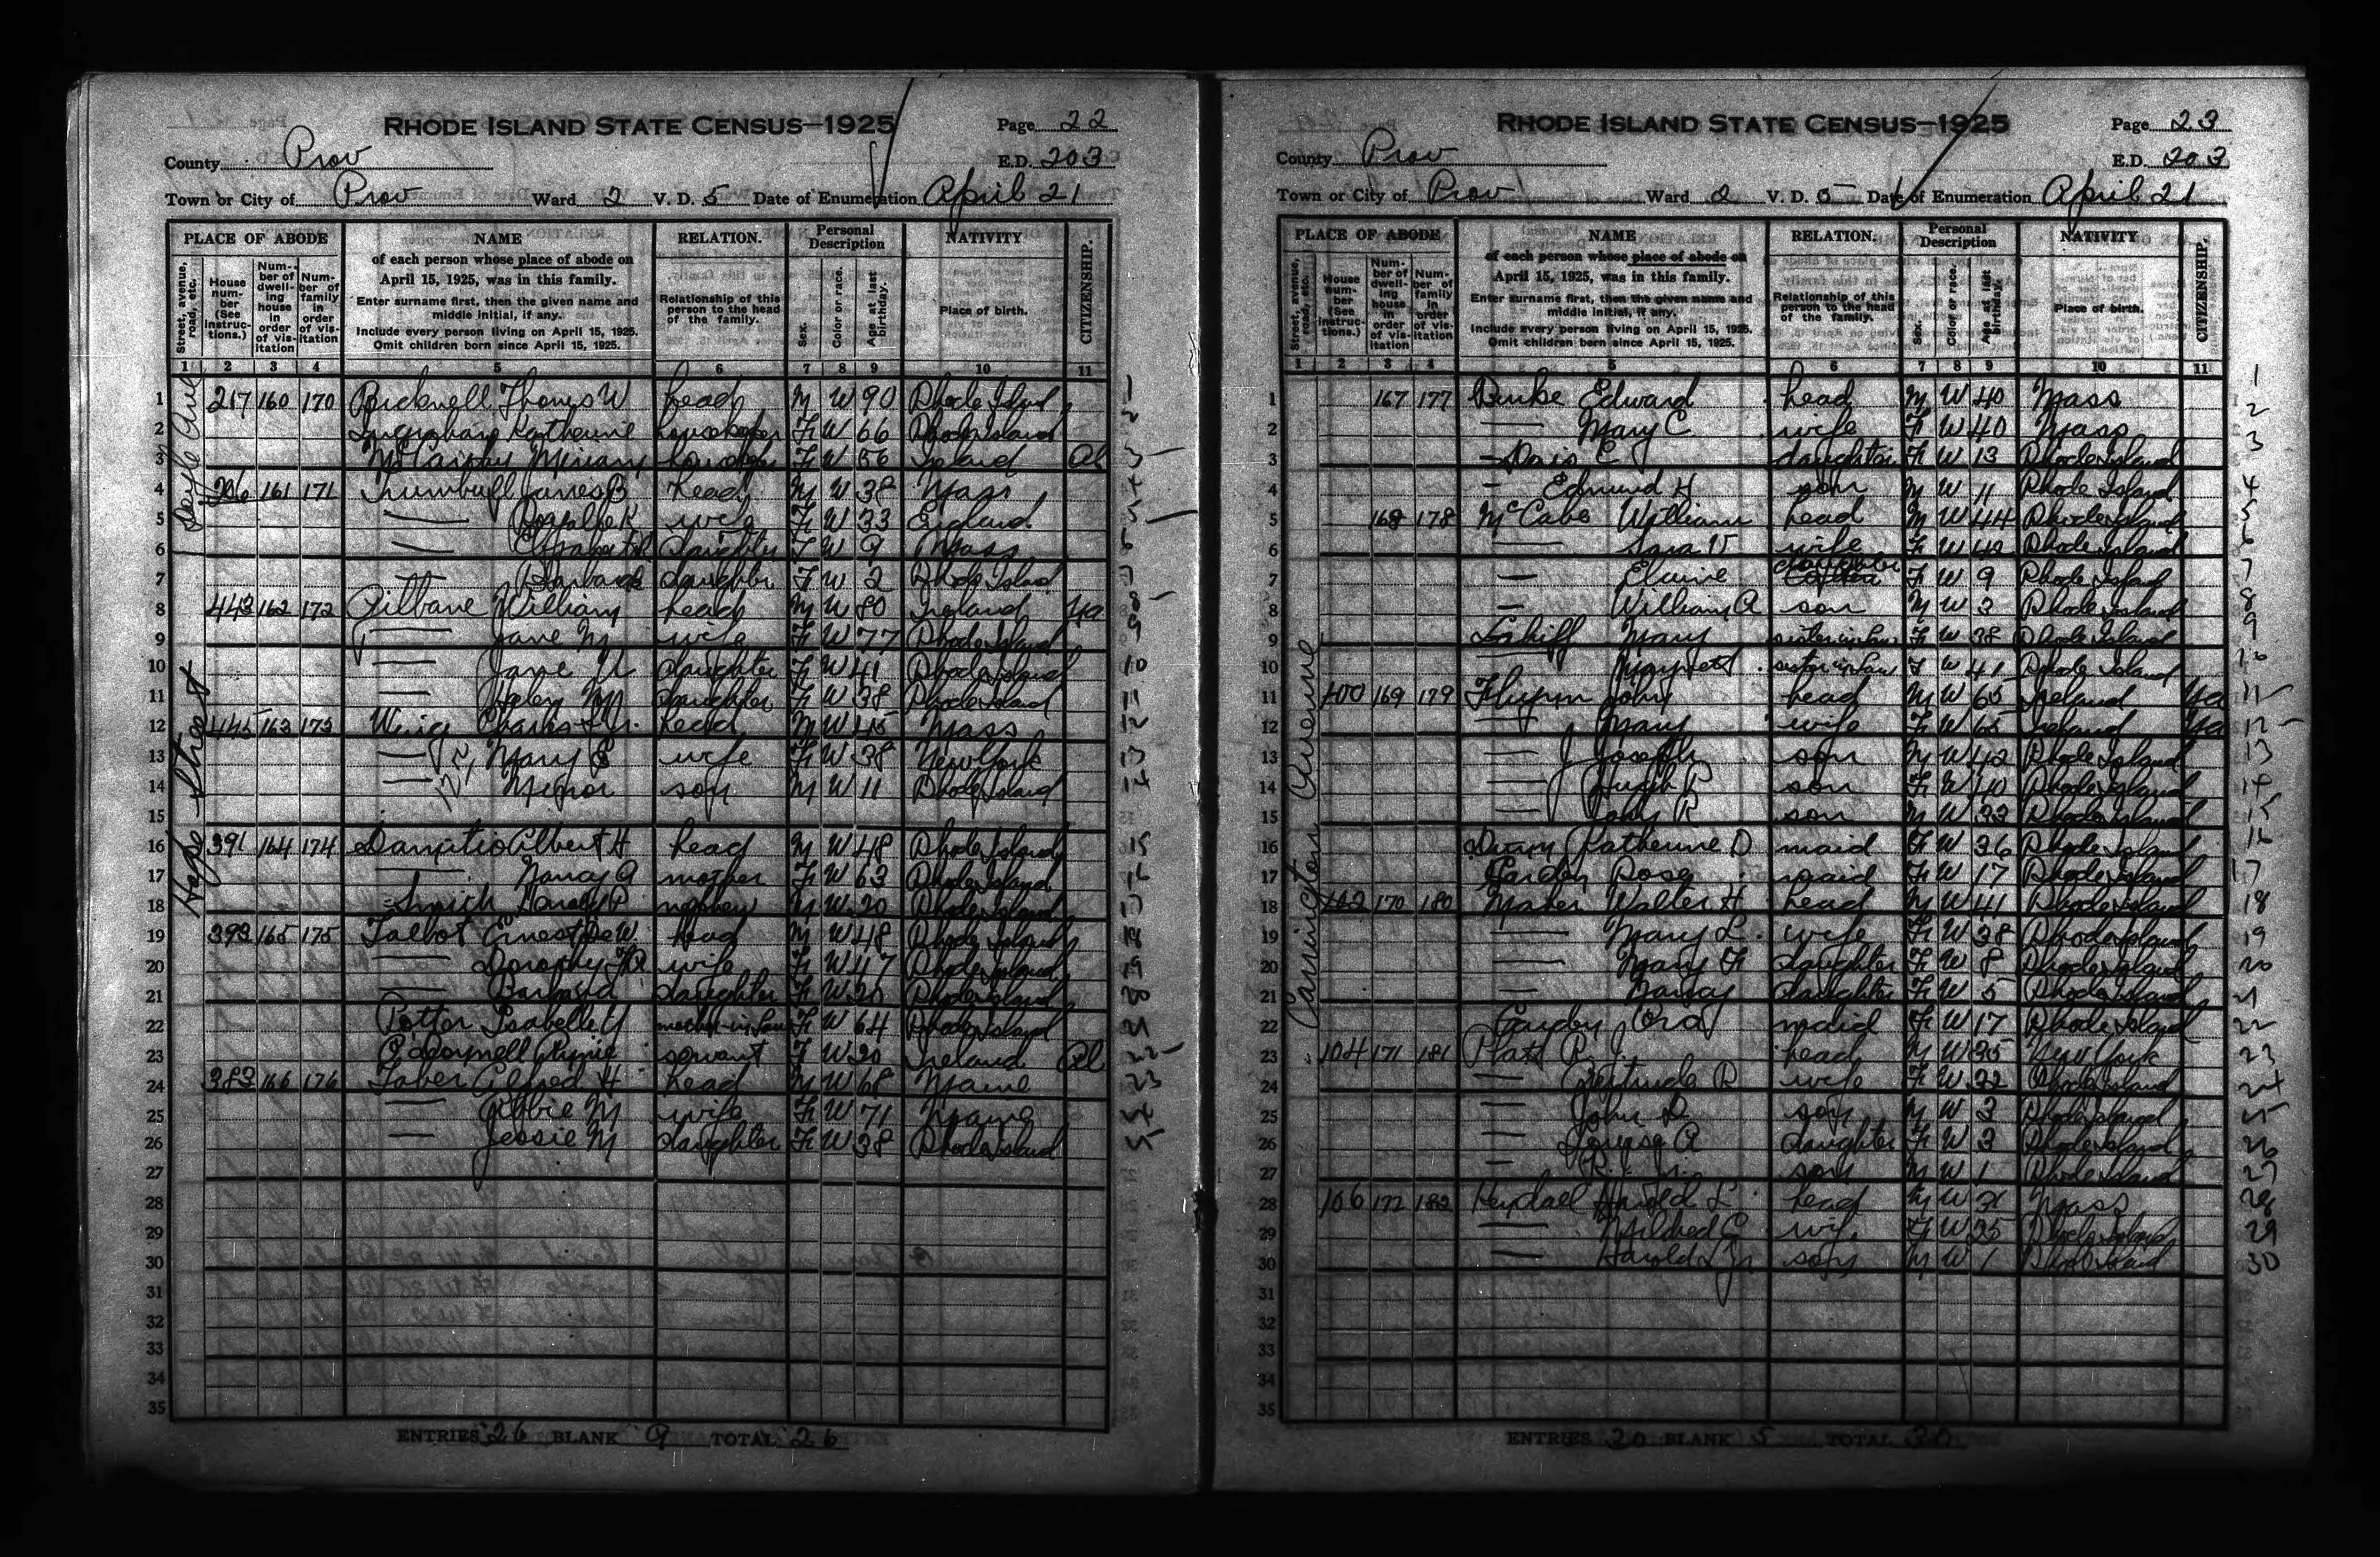 RHODE ISLAND STATE CENSUS—1925
Page 22
County Prov
E.D. 203
Town or City of Prov Ward 2 V. D. 5 Date of Enumeration April 21
PLACE OF ABODE NAME RELATION. Personal Description NATIVITY CITIZENSHIP.
Street, avenue, road, etc.
House number (See instructions.)
Number of dwelling house in order of visitation
Number of family in order of visitation
of each person whose place of abode on April 15, 1925, was in this family.
Enter surname first, then the given name and middle initial, if any.
Include every person living on April 15, 1925. Omit children born since April 15, 1925.
Relationship of this person to the head of the family.
Sex. Color or race. Age at last birthday.
Place of birth.
1 2 3 4 5 6 7 8 9 10 11
Hope Street
1 217 160 170 Bicknell Thomas W head M W 90 Rhode Island
2 Katherine housekeeper F W 66 Rhode Island
3 F W 56 Ireland Al
4 206 161 171 Trumbull James B head M W 38 Mass
5 — wife F W 33 England
6 — Elizabeth R daughter F W 9 Mass
7 — Barbara daughter F W 2 Rhode Island
8 443 162 172 Gilbane William head M W 80 Ireland Na
9 — Jane M wife F W 77 Rhode Island
10 — Jane daughter F W 41 Rhode Island
11 — Helen M daughter F W 38 Rhode Island
12 445 163 173 head M W 45 Mass
13 — Mary wife F W 38 New York
14 — son M W 11 Rhode Island
15
16 391 164 174 Albert H head M W 48 Rhode Island
17 — Nancy A mother F W 63 Rhode Island
18 Smith nephew M W 20 Rhode Island
19 393 165 175 Talbot Ernest De W head M W 48 Rhode Island
20 — Dorothy wife F W 47 Rhode Island
21 — Barbara daughter F W 20 Rhode Island
22 Potter Isabelle mother-in-law F W 64 Rhode Island
23 O'Connell Annie servant F W 20 Ireland Al
24 383 166 176 Taber Alfred H head M W 68 Maine
25 — Abbie M wife F W 71 Maine
26 — Jessie M daughter F W 38 Rhode Island
27
28
29
30
31
32
33
34
35
ENTRIES 26 BLANK 9 TOTAL 26
RHODE ISLAND STATE CENSUS—1925
Page 23
County Prov
E.D. 203
Town or City of Prov Ward 2 V. D. 5 Date of Enumeration April 21
PLACE OF ABODE NAME RELATION. Personal Description NATIVITY CITIZENSHIP.
Street, avenue, road, etc.
House number (See instructions.)
Number of dwelling house in order of visitation
Number of family in order of visitation
of each person whose place of abode on April 15, 1925, was in this family.
Enter surname first, then the given name and middle initial, if any.
Include every person living on April 15, 1925. Omit children born since April 15, 1925.
Relationship of this person to the head of the family.
Sex. Color or race. Age at last birthday.
Place of birth.
1 2 3 4 5 6 7 8 9 10 11
Carrington Avenue
1 167 177 Burke Edward head M W 40 Mass
2 — Mary C wife F W 40 Mass
3 — Doris C daughter F W 13 Rhode Island
4 — Edmund H son M W 11 Rhode Island
5 168 178 McCabe William head M W 44 Rhode Island
6 — Sara V wife F W 42 Rhode Island
7 — Elaine daughter F W 9 Rhode Island
8 — William A son M W 3 Rhode Island
9 Lahiff Mary sister in law F W 38 Rhode Island
10 — Margaret sister in law F W 41 Rhode Island
11 100 169 179 Flynn John head M W 65 Ireland Na
12 — Mary wife F W 65 Ireland Na
13 — J Joseph son M W 42 Rhode Island
14 — Hugh son W 40 Rhode Island
15 — John son M W 33 Rhode Island
16 Katherine D maid F W 36 Rhode Island
17 Rose maid F W 17 Rhode Island
18 102 170 180 Maher Walter H head M W 41 Rhode Island
19 — Mary L wife F W 38 Rhode Island
20 — Mary F daughter F W 8 Rhode Island
21 — Nancy daughter F W 5 Rhode Island
22 Ora maid F W 17 Rhode Island
23 104 171 181 Platt R. J. head M W 35 New York
24 — Gertrude R wife F W 32 Rhode Island
25 — John son M W 3 Rhode Island
26 — Louise A daughter F W 3 Rhode Island
27 — R. J. Jr. son M W 1 Rhode Island
28 106 172 182 Harold L head M W 31 Mass
29 — Mildred C wife F W 25 Rhode Island
30 — Harold L Jr son M W 1 Rhode Island
31
32
33
34
35
ENTRIES 30 BLANK 5 TOTAL 30